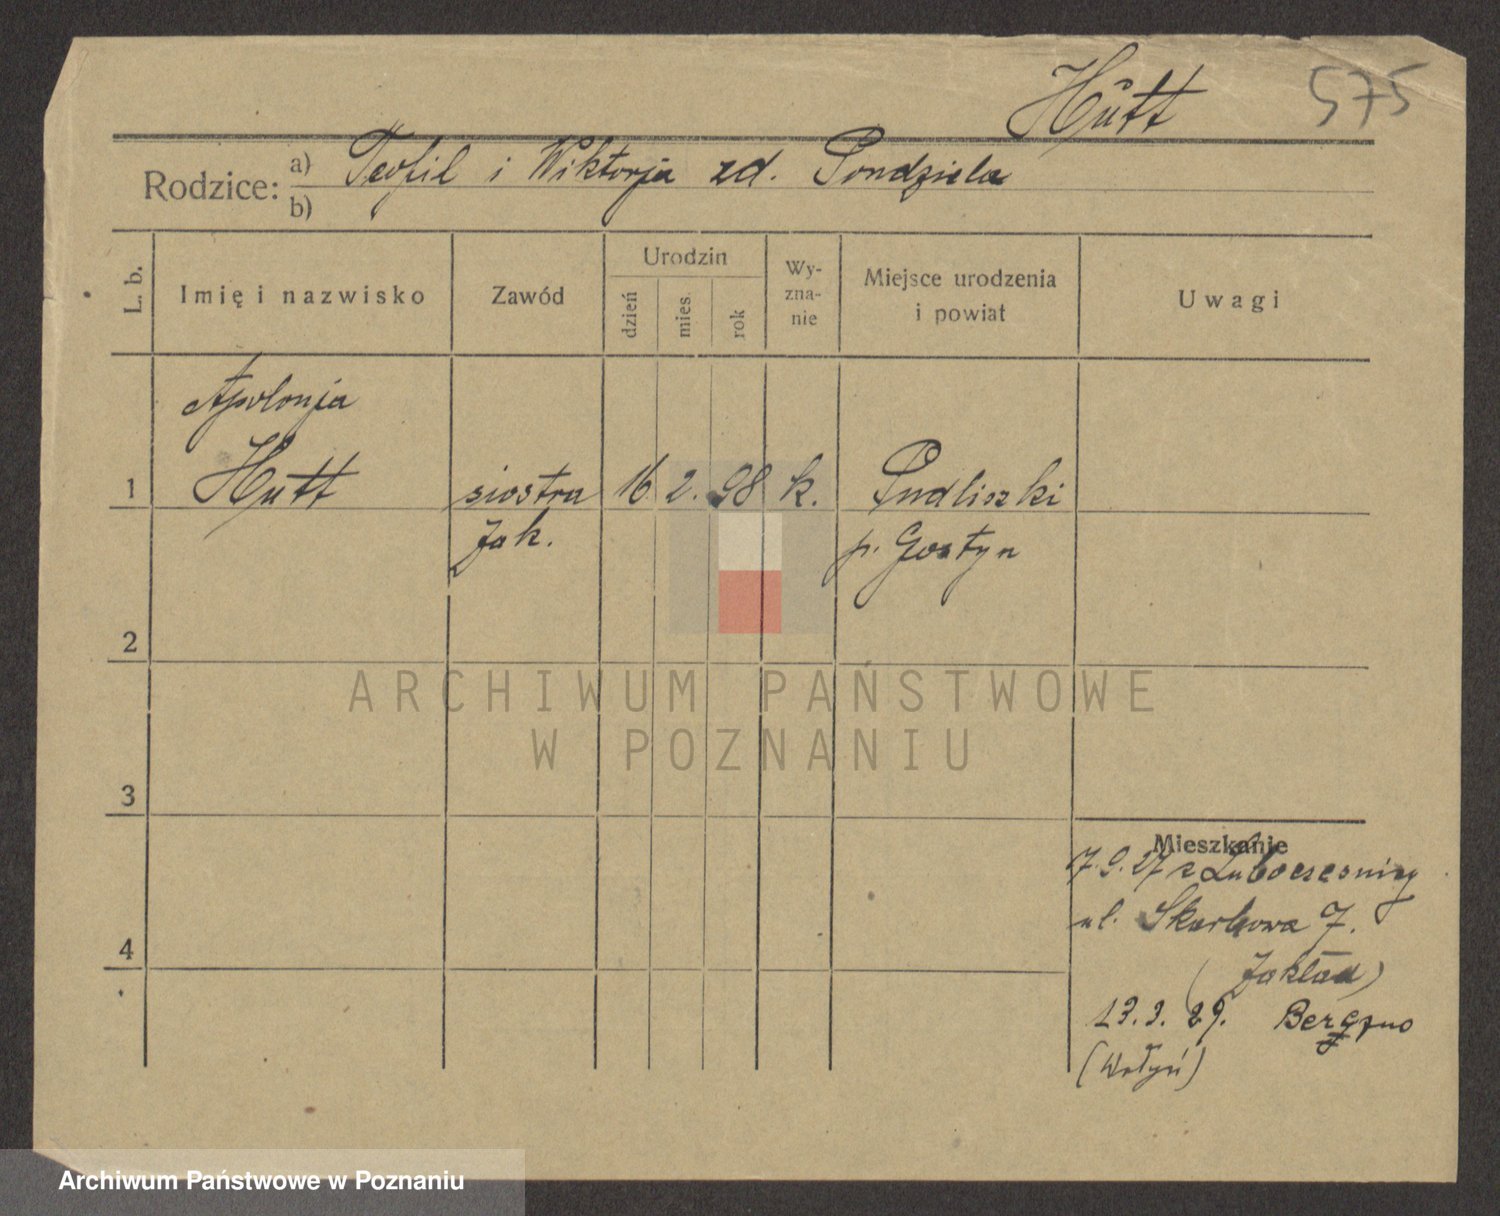 Hütt 575
Rodzice: a) Teofil i Wiktorja zd. Pondziela
b)
L. b.
Imię i nazwisko
Zawód
Urodzin
dzień
mies.
rok
Wy-
zna-
nie
Miejsce urodzenia
i powiat
Uwagi
Apolonja
1 Hütt siostra 16 2. 98 k. Pudliszki
zak. p. Gostyn
2
ARCHIWUM PAŃSTWOWE
W POZNANIU
3
Mieszkanie
17.9.27 z
ul. Skarbowa 7.
4
(Zakład)
13.3.29. Berezno
(Wołyń)
Archiwum Państwowe w Poznaniu